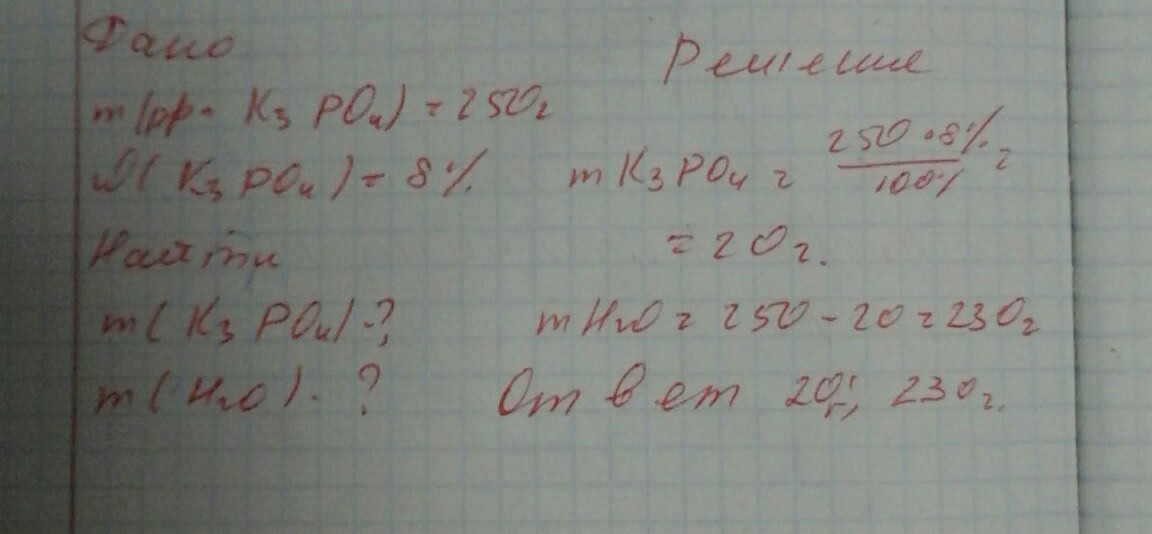 Дано
Решение
m(рр. K3PO4) = 250г
ω(K3PO4) = 8%
mK3PO4 = 250 • 8% / 100% =
Найти
= 20г.
m(K3PO4)-?
mH2O = 250 - 20 = 230г
m(H2O). ?
Ответ 20г; 230г.